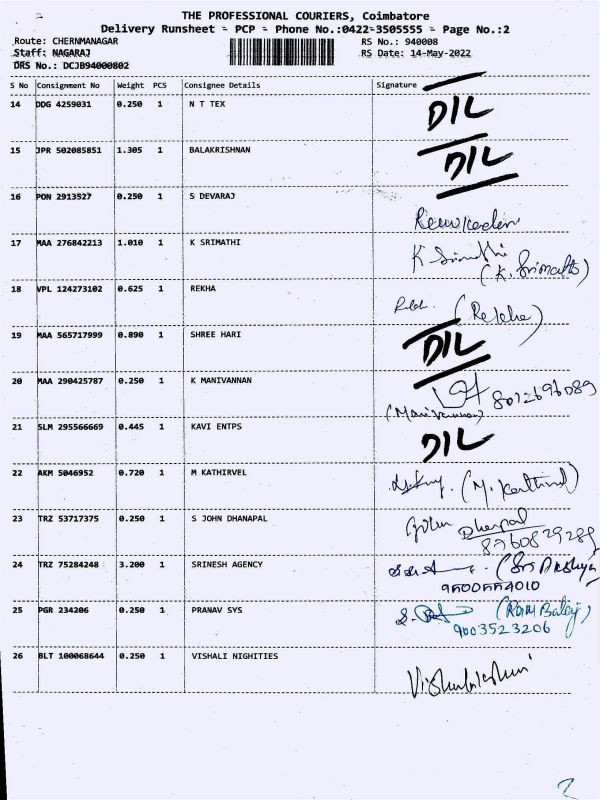 THE PROFESSIONAL COURIERS, Coimbatore
Delivery Runsheet - PCP - Phone No.:0422-3505555 - Page No.:2
Route: CHERNMANAGAR RS No.: 940008
Staff: NAGARAJ RS Date: 14-May-2022
DRS No.: DCJB94000802
S No Consignment No Weight PCS Consignee Details Signature
14 DDG 4259031 0.250 1 N T TEX DIL
15 JPR 502085851 1.305 1 BALAKRISHNAN DIL
16 PON 2913527 0.250 1 S DEVARAJ
17 MAA 276842213 1.010 1 K SRIMATHI K (K. Srimathi)
18 VPL 124273102 0.625 1 REKHA (Rekha)
19 MAA 565717999 0.890 1 SHREE HARI DIL
20 MAA 290425787 0.250 1 K MANIVANNAN 8012696089
(Manivannan)
21 SLM 295566669 0.445 1 KAVI ENTPS DIL
22 AKM 5046952 0.720 1 M KATHIRVEL
23 TRZ 53717375 0.250 1 S JOHN DHANAPAL
8760829289
24 TRZ 75284248 3.200 1 SRINESH AGENCY
25 PGR 234206 0.250 1 PRANAV SYS (Ram Balaji)
9003523206
26 BLT 100068644 0.250 1 VISHALI NIGHITIES
2